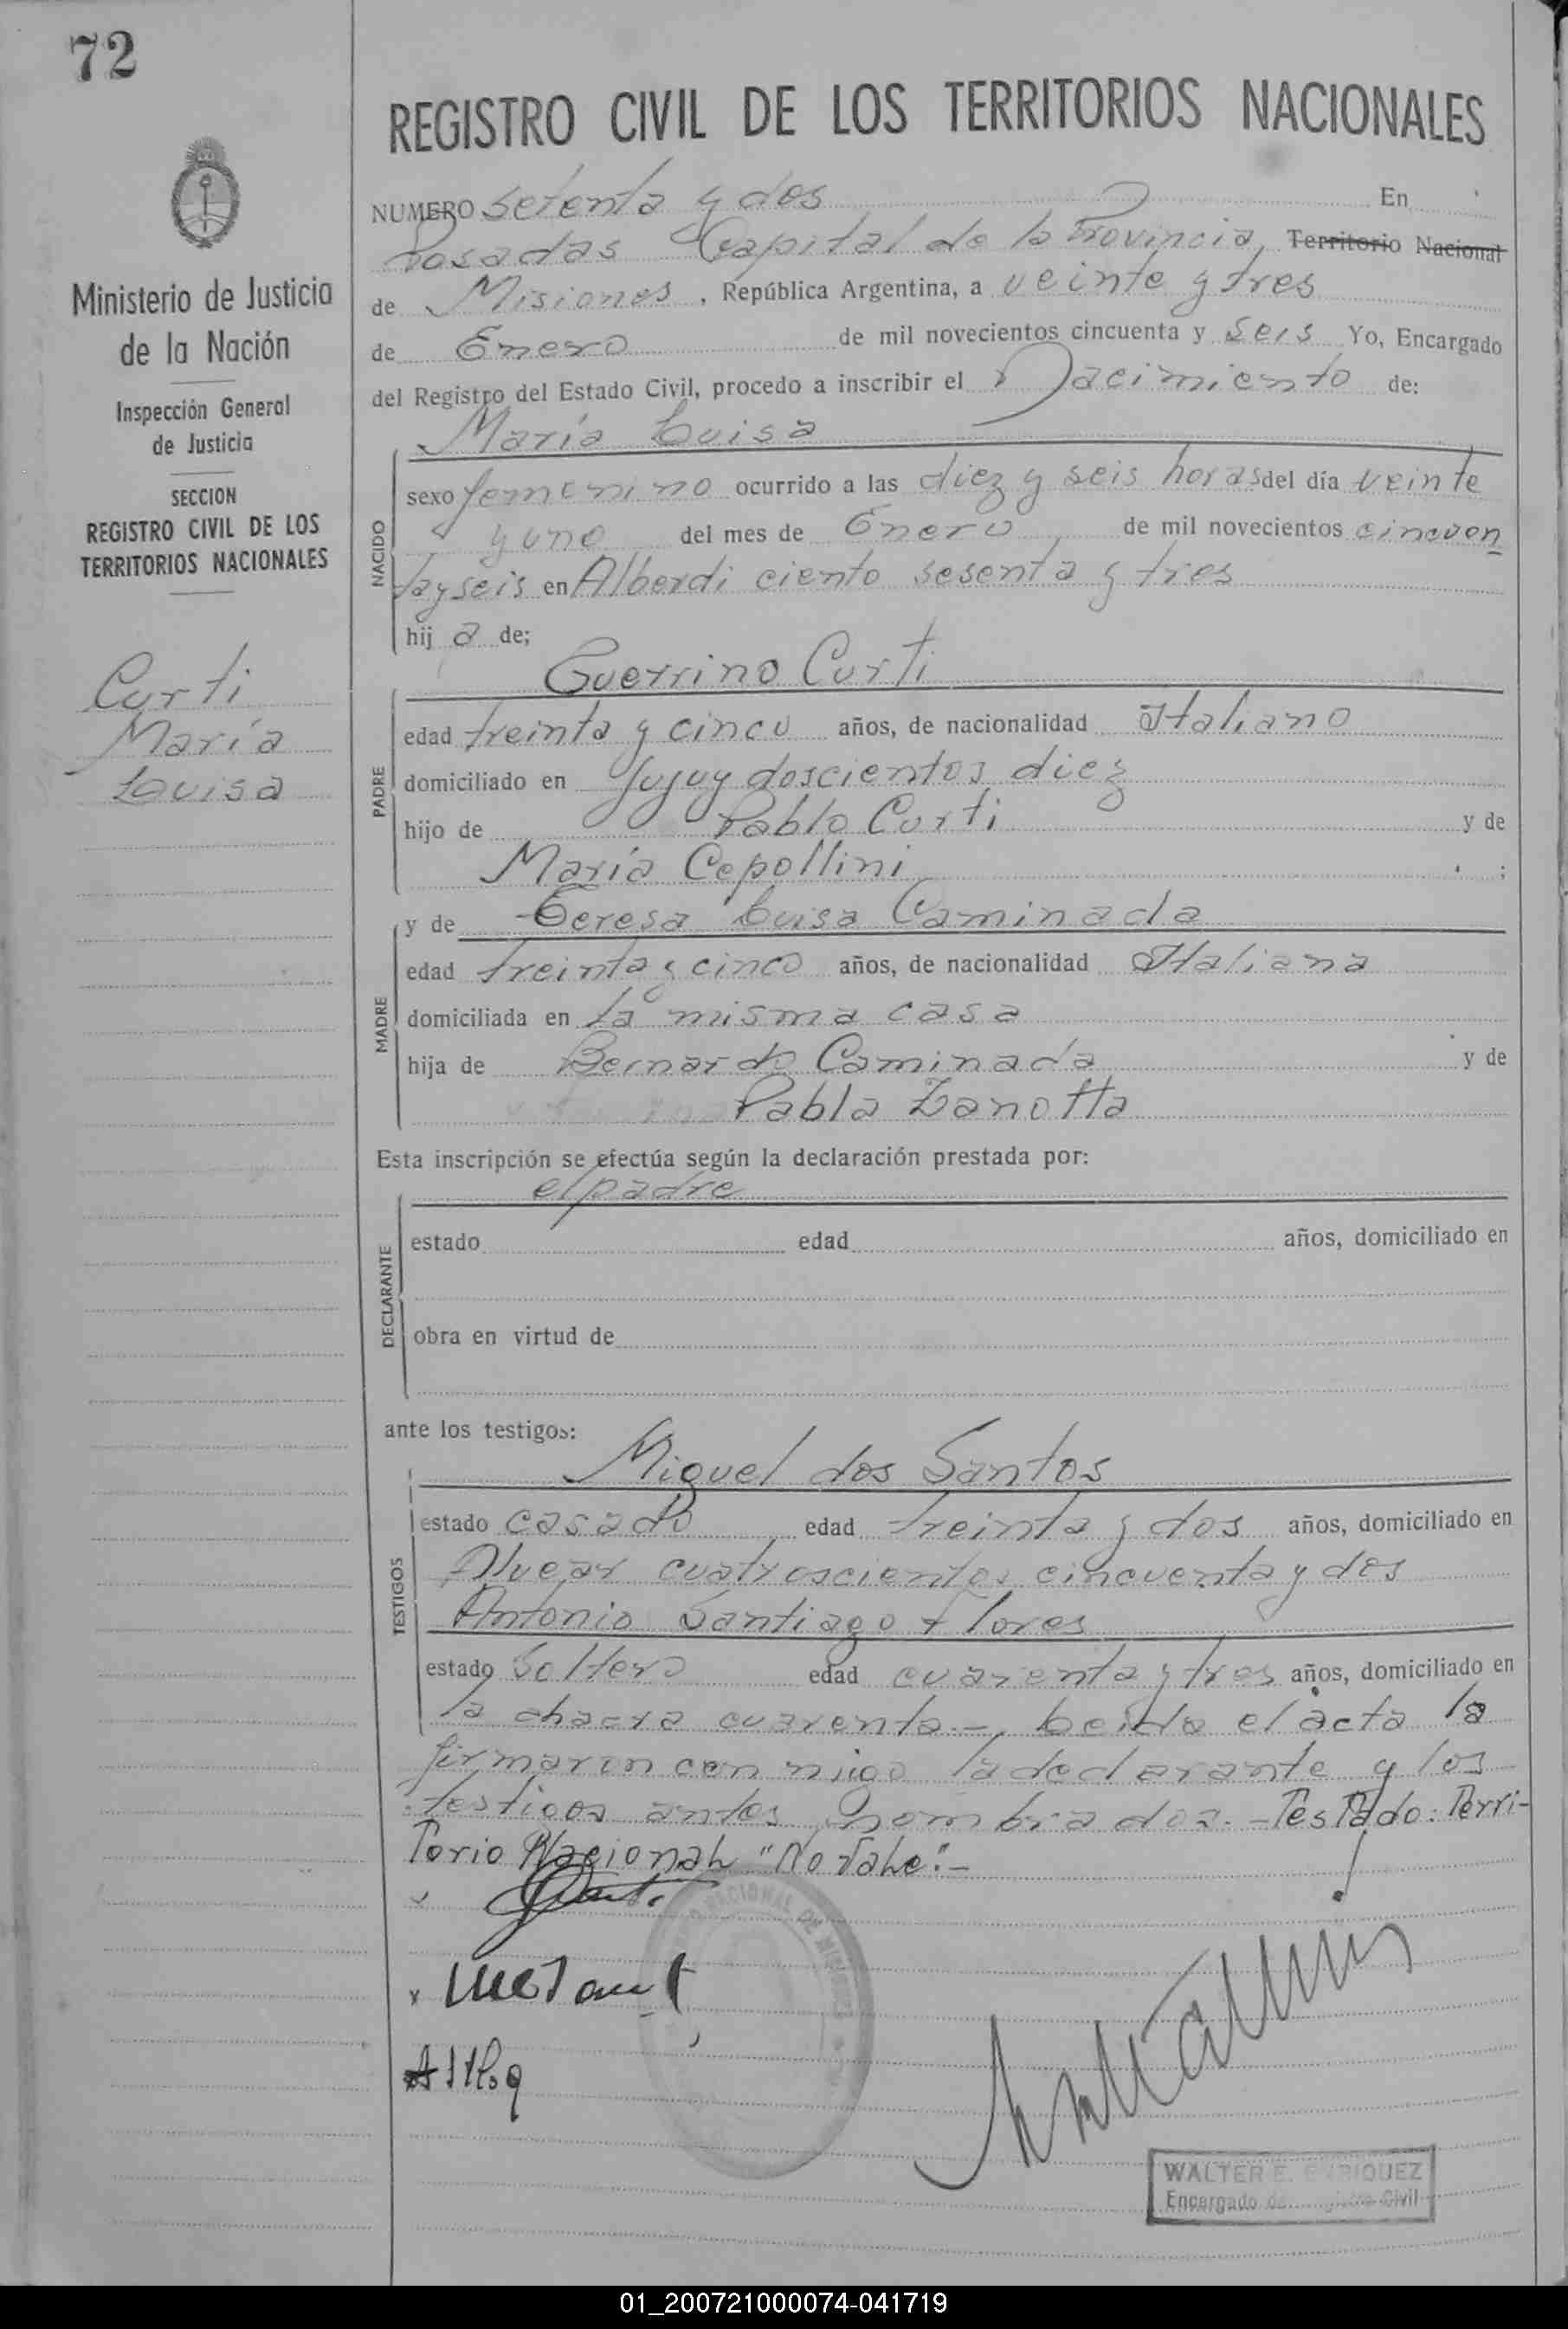 72
REGISTRO CIVIL DE LOS TERRITORIOS NACIONALES
Ministerio de Justicia
de la Nación
Inspección General
de Justicia
SECCION
REGISTRO CIVIL DE LOS
TERRITORIOS NACIONALES
Curti
María
Luisa
NUMERO setenta y dos En
Posadas Capital de la Provincia, Territorio Nacional
de Misiones, República Argentina, a veinte y tres
de Enero de mil novecientos cincuenta y seis Yo, Encargado
del Registro del Estado Civil, procedo a inscribir el Nacimiento de:
María Luisa
NACIDO
sexo femenino ocurrido a las diez y seis horas del día veinte
y uno del mes de Enero de mil novecientos cincuen
ta y seis en Alberdi ciento sesenta y tres
hij a de;
Guerrino Curti
PADRE
edad treinta y cinco años, de nacionalidad Italiano
domiciliado en Jujuy doscientos diez
hijo de Pablo Curti y de
María Cepollini ;
y de Teresa Luisa Caminada
MADRE
edad treinta y cinco años, de nacionalidad Italiana
domiciliada en la misma casa
hija de Bernardo Caminada y de
Pabla Zanotta
Esta inscripción se efectúa según la declaración prestada por:
el padre
DECLARANTE
estado edad años, domiciliado en
obra en virtud de
ante los testigos:
Miguel dos Santos
TESTIGOS
estado casado edad treinta y dos años, domiciliado en
Alvear cuatroscientos cincuenta y dos
Antonio Santiago Flores
estado Soltero edad cuarenta y tres años, domiciliado en
la chacra cuarenta.- Leida el acta la
firmaron con migo la declarante y los
testigos antes nombrados.- Testado: Terri-
torio Nacional "No Vale".-
NACIONAL DE MISIONES
WALTER E. ENRIQUEZ
Encargado del Registro Civil
01_200721000074-041719